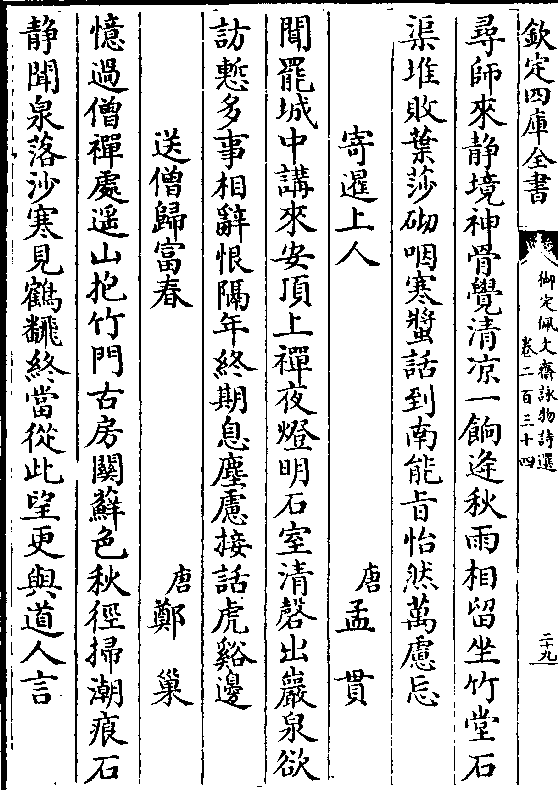 欽定四庫全書
御定佩文齋詠物詩選
卷二百三十四
二十九
尋師來静境神骨覺清凉一餉逢秋雨相留坐竹堂石
渠堆敗葉莎砌咽寒螀話到南能旨怡然萬慮忘
寄暹上人 唐 孟貫
聞罷城中講來安頂上禪夜燈明石室清磬出巖泉欲
訪慙多事相辭恨隔年終期息塵慮接話虎谿邊
送僧歸富春 唐 鄭巢
憶過僧禪處遥山抱竹門古房關蘚色秋徑掃潮痕石
静聞泉落沙寒見鶴翻終當從此望更與道人言